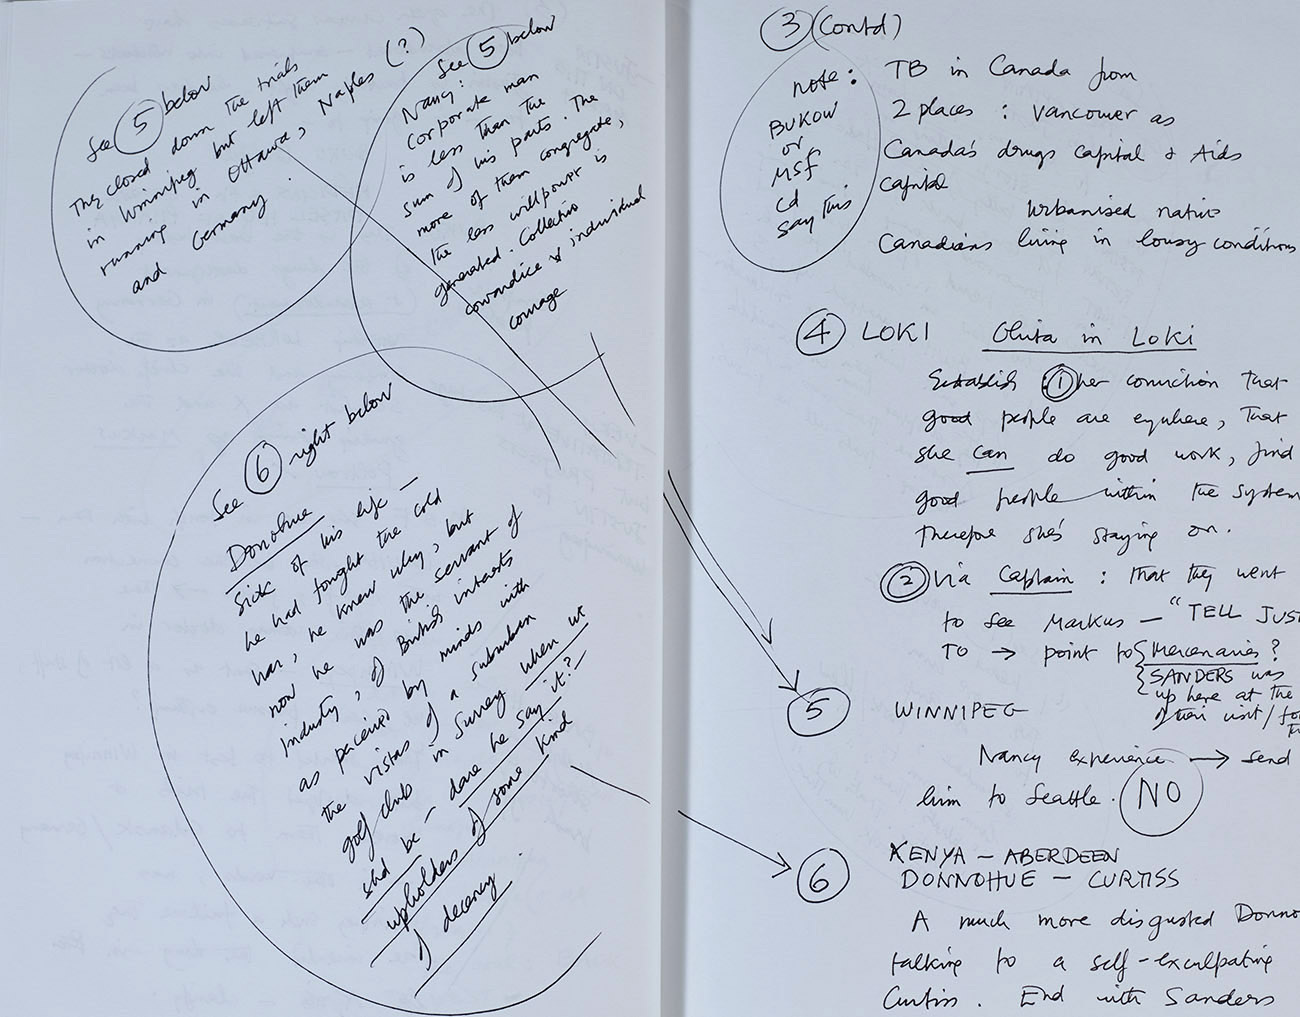 See 5 below
They closed down the trials
in Winnipeg but left them
running in Ottawa, Naples (?)
and Germany.
See 5 below
Nancy:
corporate man
is less than the
sum of his parts. The
more of them congregate,
the less willpower is
generated. Collective
cowardice & individual
courage
See 6 right below
Donohue
Sick of his life —
he had fought the cold
war, he knew why, but
now he was the servant of
Industry, of British interests
as perceived by minds with
the vistas of a suburban
golf club in Surrey when we
shd be — dare he say it? —
upholders of some kind
of decency.
3 (Contd)
note:
BUKOW
or
MSF
cd
say this
TB in Canada from
2 places : Vancouver as
Canada's drugs capital & Aids
capital
Urbanised native
Canadians living in lousy conditions
4 LOKI Ghita in Loki
Establish 1 her conviction that
good people are evywhere, that
she can do good work, find
good people within the system
Therefore she's staying on.
2 Via Captain : that they went
to see Markus — "TELL JUST
TO → point to { Mercenaries ?
{ SANDERS was
up here at the
of their visit/
5 WINNIPEG
Nancy experience → send
him to Seattle. NO
6 KENYA — ABERDEEN
DONNOHUE — CURTISS
A much more disgusted Donno
talking to a self-exculpating
Curtiss. End with Sanders